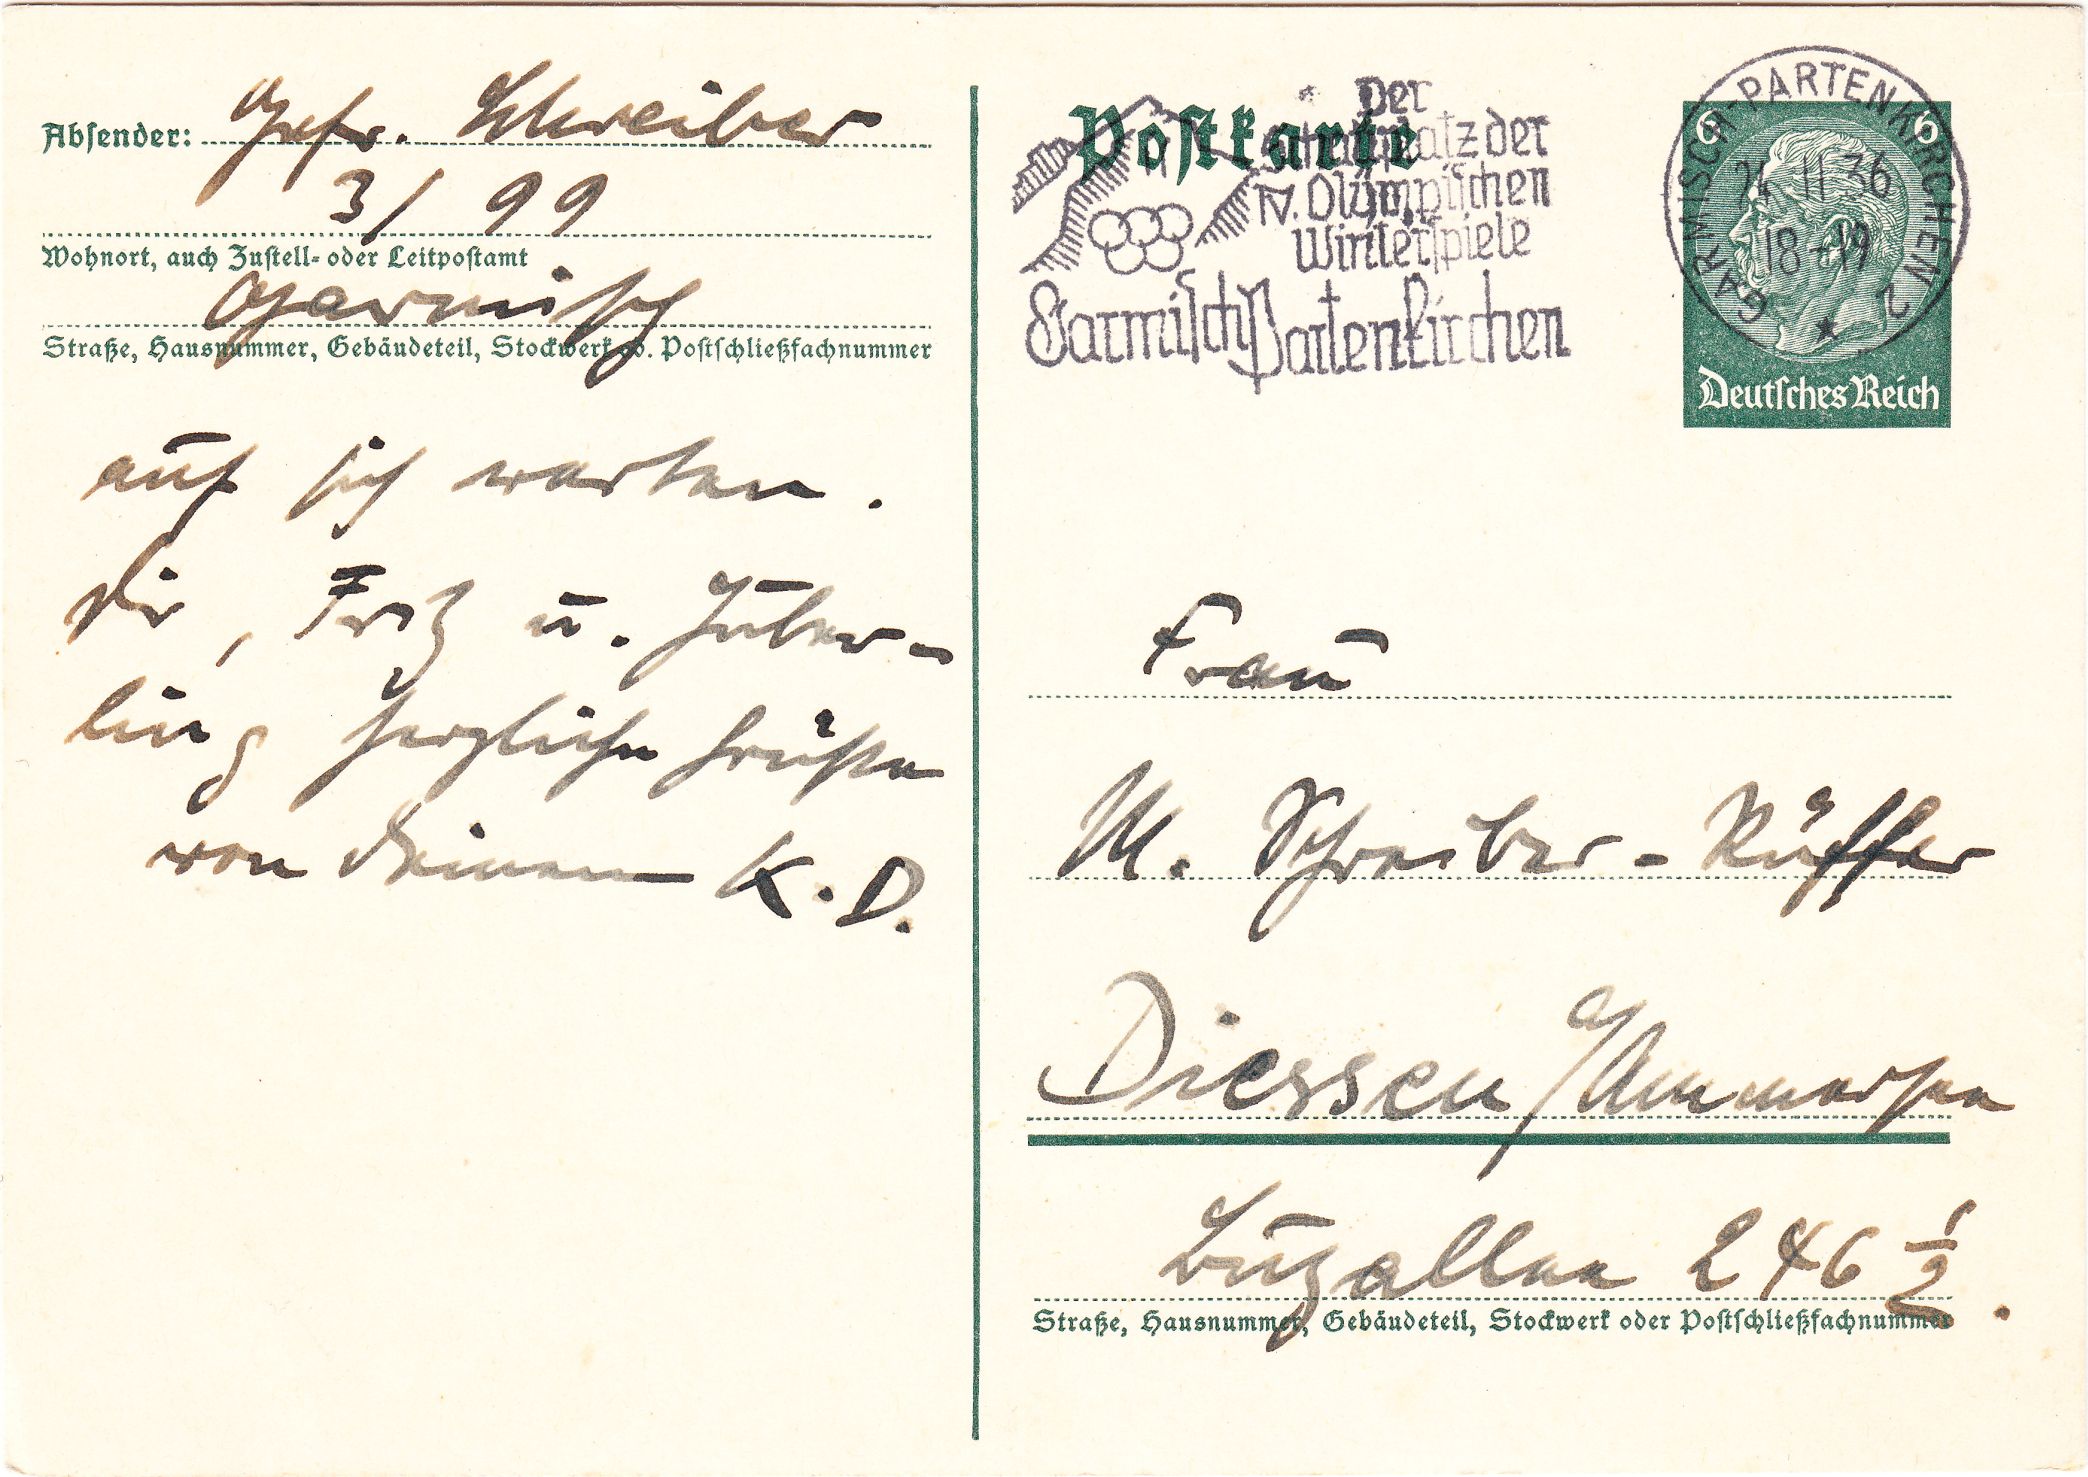 Absender: Gefr. Schreiber
3/99
Wohnort, auch Zustell- oder Leitpostamt
Garmisch
Straße, Hausnummer, Gebäudeteil, Stockwerk od. Postschließfachnummer
auf sich warten.
Dir, Fritz u. Huber-
ling herzliche Grüße
von Deinem K. D.
Postkarte
Der
Schauplatz der
IV. Olympischen
Winterspiele
Garmisch Partenkirchen
GARMISCH-PARTENKIRCHEN 2
11 36
18-19
6 6
Deutsches Reich
Frau
M. Schreiber-Rüffer
Diessen a/Ammersee
246 1/2.
Straße, Hausnummer, Gebäudeteil, Stockwerk oder Postschließfachnummer